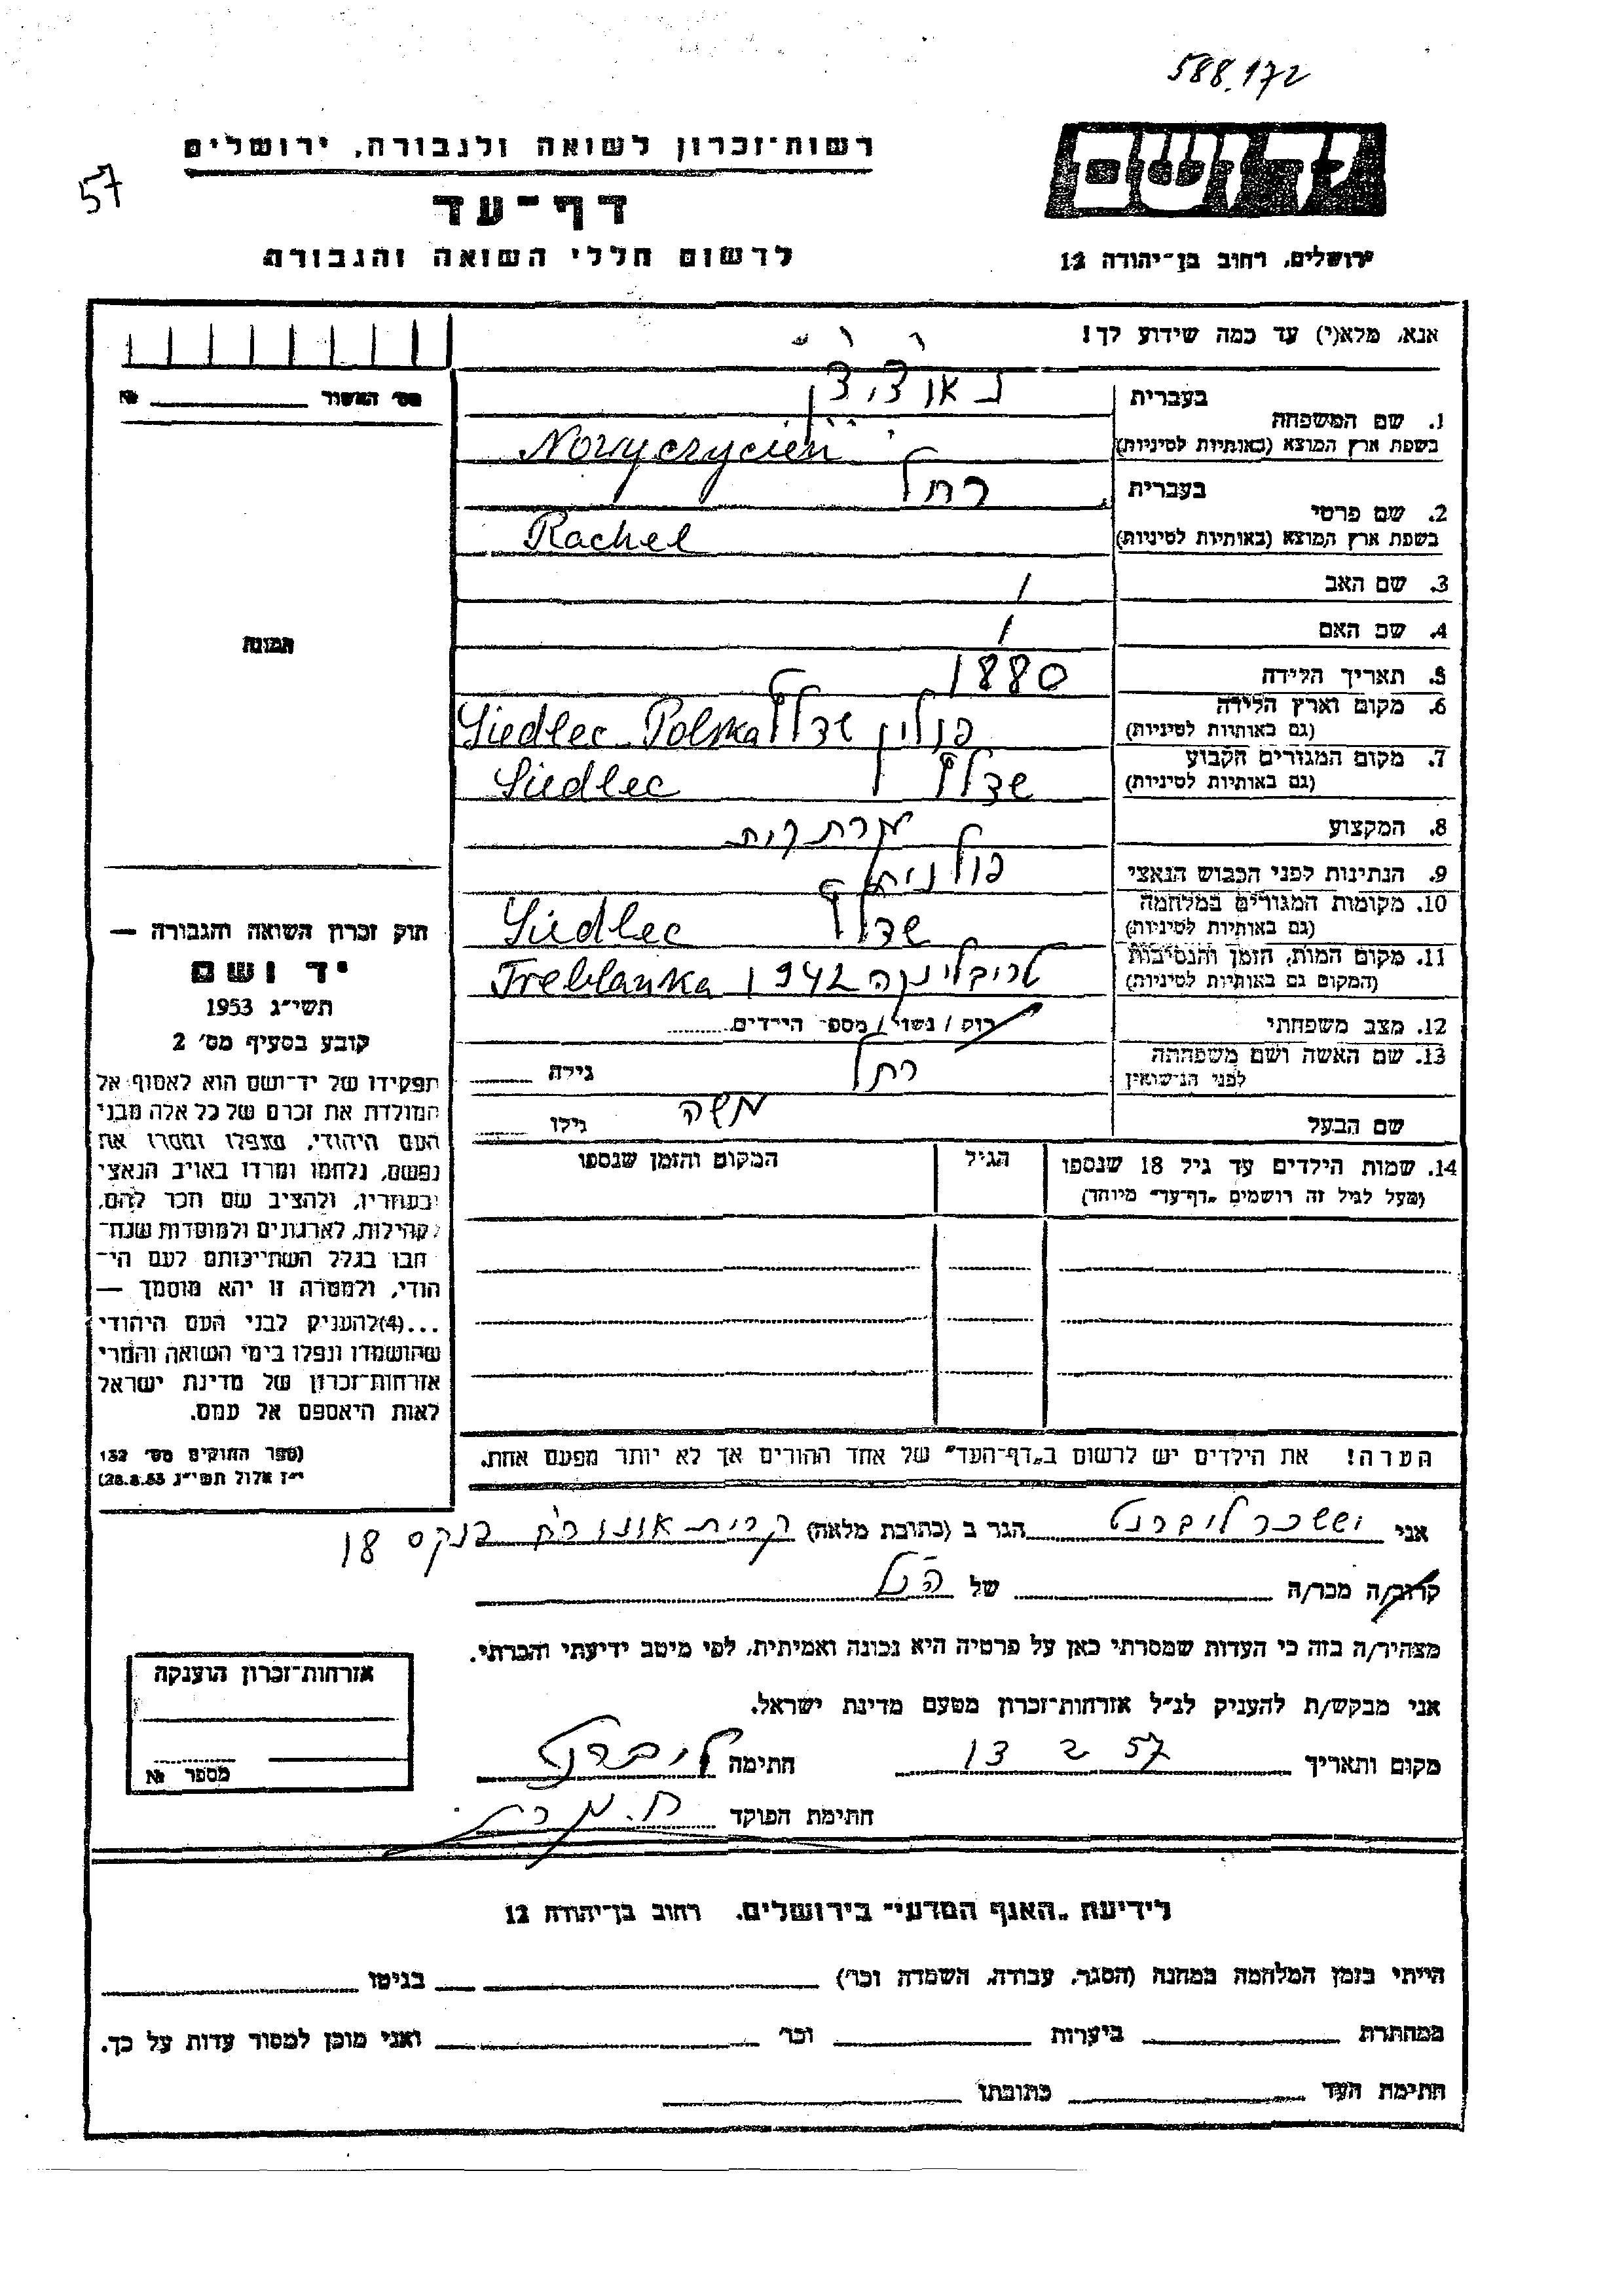 588.172
רשות־זכרון לשואה ולגבורה, ירושלים
57
דף־עד
לרשום חללי השואה והגבורה
יד ושם
ירושלים, רחוב בן־יהודה 12
אנא, מלא(י) עד כמה שידוע לך!
מס׳ האשור № 
1. שם המשפחה
בעברית
בשפת ארץ המוצא (באותיות לטיניות) Nowyczycień
2. שם פרטי
בעברית רחל
בשפת ארץ המוצא (באותיות לטיניות) Rachel
3. שם האב /
4. שם האם /
תמונה
5. תאריך הלידה 1880
6. מקום וארץ הלידה (גם באותיות לטיניות) פולין שדלץ Siedlec Polska
7. מקום המגורים הקבוע (גם באותיות לטיניות) שדלץ Siedlec
8. המקצוע
9. הנתינות לפני הכבוש הנאצי פולנית
10. מקומות המגורים במלחמה (גם באותיות לטיניות) שדלץ Siedlec
11. מקום המות, הזמן והנסיבות (המקום גם באותיות לטיניות) טריבלינקה 1942 Treblanka
12. מצב משפחתי רוק / נשוי / מספר הילדים
13. שם האשה ושם משפחתה לפני הנישואין רחל גילה
שם הבעל משה גילו
14. שמות הילדים עד גיל 18 שנספו
(מעל לגיל זה רושמים „דף־עד״ מיוחד)
הגיל
המקום והזמן שנספו
חוק זכרון השואה והגבורה —
יד ושם
תשי״ג 1953
קובע בסעיף מס׳ 2
תפקידו של יד־ושם הוא לאסוף אל
המולדת את זכרם של כל אלה מבני
העם היהודי, שנפלו ומסרו את
נפשם, נלחמו ומרדו באויב הנאצי
ובעוזריו, ולהציב שם וזכר להם,
לקהילות, לארגונים ולמוסדות שנח־
רבו בגלל השתייכותם לעם הי־
הודי, ולמטרה זו יהא מוסמך —
...(4)להעניק לבני העם היהודי
שהושמדו ונפלו בימי השואה והמרי
אזרחות־זכרון של מדינת ישראל
לאות היאספם אל עמם.
(ספר החוקים מס׳ 132
י״ז אלול תשי״ג 28.8.53)
הערה! את הילדים יש לרשום ב„דף־העד״ של אחד ההורים אך לא יותר מפעם אחת.
אני יששכר ליברנט הגר ב (כתובת מלאה) קרית אונו רח׳ פנקס 18
קרוב/ה מכר/ה של הנ״ל
מצהיר/ה בזה כי העדות שמסרתי כאן על פרטיה היא נכונה ואמיתית, לפי מיטב ידיעתי והכרתי.
אני מבקש/ת להעניק לנ״ל אזרחות־זכרון מטעם מדינת ישראל.
מקום ותאריך 13 2 57 חתימה ליברנט
חתימת הפוקד
אזרחות־זכרון הוענקה
מספר №
לידיעת „האגף המדעי״ בירושלים. רחוב בן־יהודה 12
הייתי בזמן המלחמה במחנה (הסגר, עבודה, השמדה וכו׳) בגיטו
במחתרת ביערות וכו׳ ואני מוכן למסור עדות על כך.
חתימת העד כתובתו